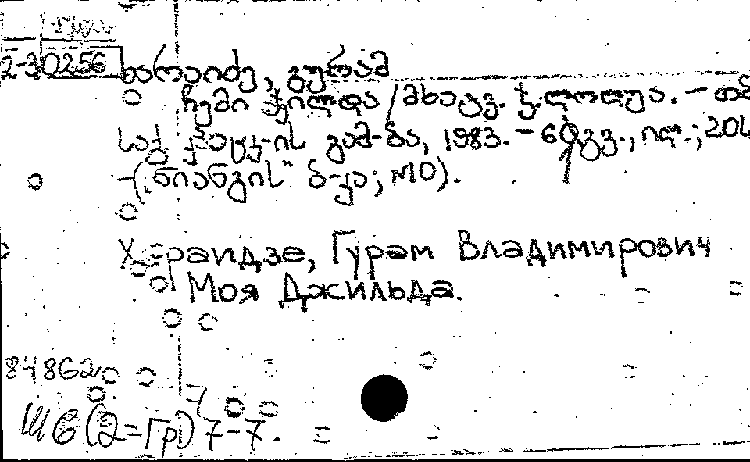 2-30256
ხარაიძე, გურამ
ჩემი ჭილდა /მხატვ. ჭ.ლოლუა. – თბ
საქ კპ ცკ-ის გამ-ბა, 1983. – 60გვ., ილ.; 20
– („ნიანგის" ბ-კა; №10).
Хараидзе, Гурам Владимирович
Моя Джильда.
84862
Ш6(2=Гр)7-7.